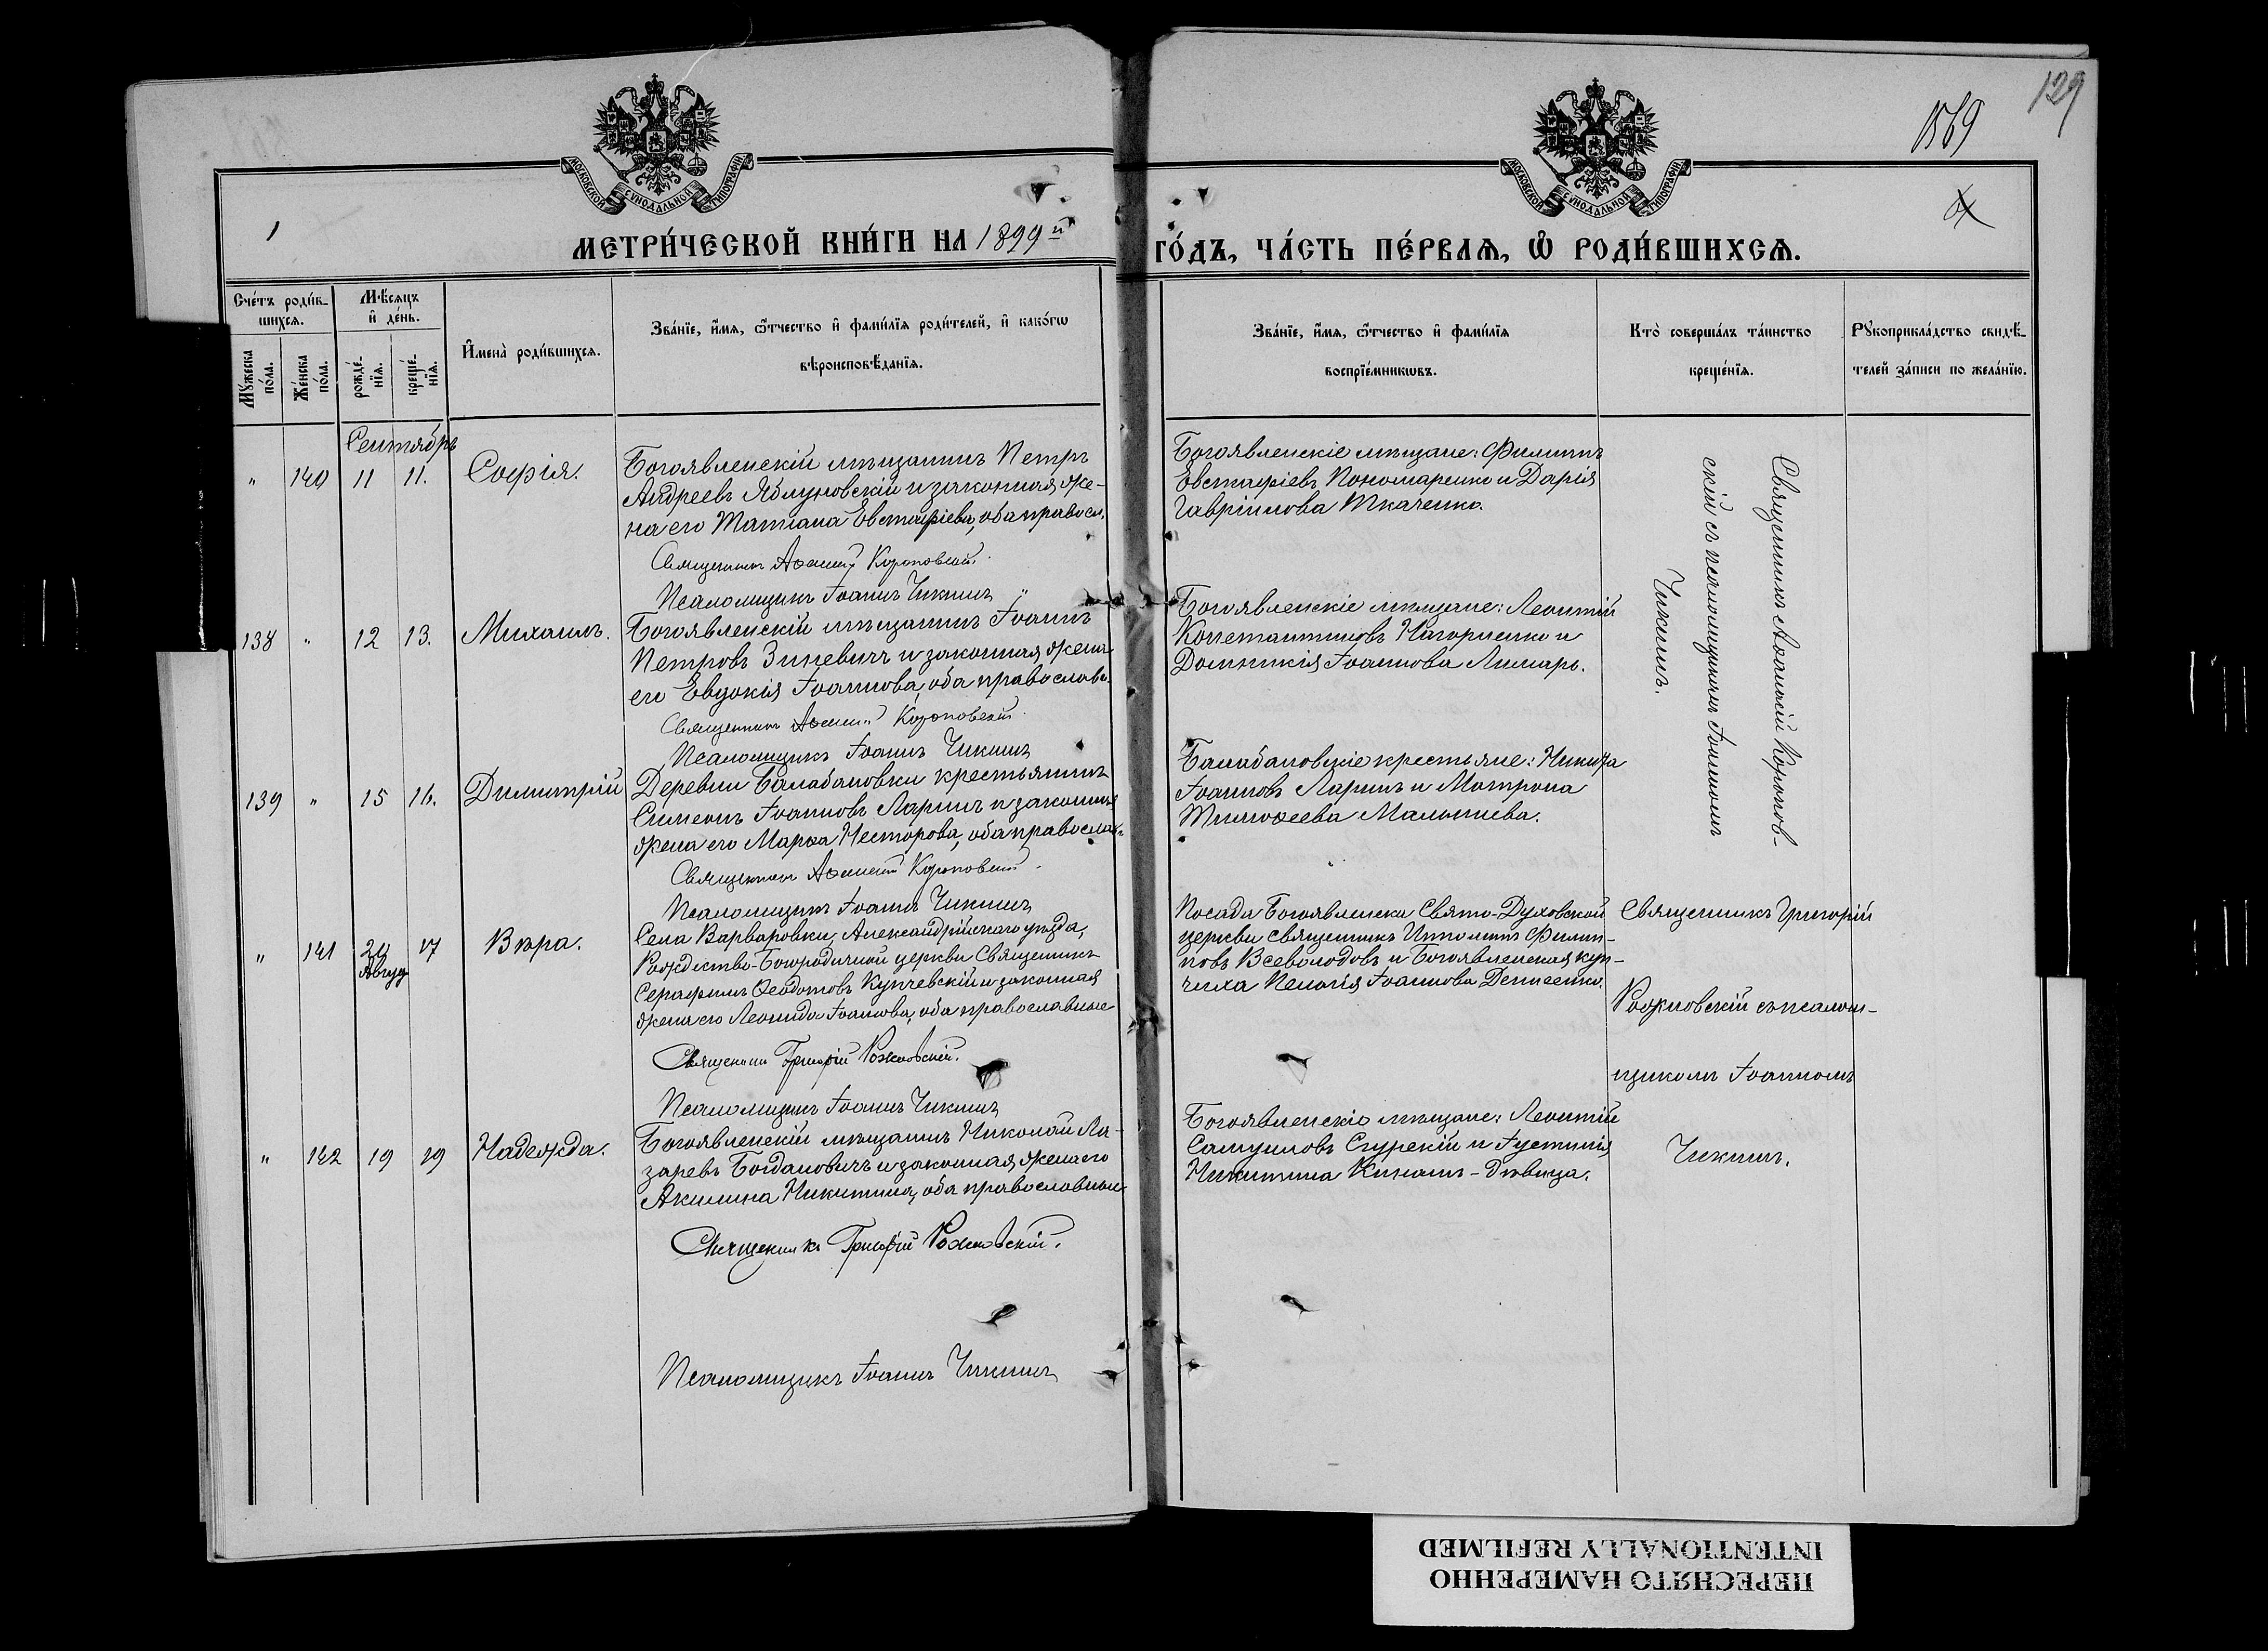 129
1569
МОСКОВСКОЙ СѴНОДАЛЬНОЙ ТИПОГРАФІИ
МОСКОВСКОЙ СѴНОДАЛЬНОЙ ТИПОГРАФІИ
МЕТРИ́ЧЕСКОЙ КНИ́ГИ НА 1899й
ГО́ДЪ, ЧА́СТЬ ПЕ́РВАѦ, Ѡ РОДИ́ВШИХСѦ.
Сче́тъ роди́в-
шихсѧ.
Мѣ́сѧцъ
и҆ де́нь.
Мꙋ́жеска по́ла.
Же́нска по́ла.
рожде́-
нїѧ.
креще́-
нїѧ.
И҆мена̀ роди́вшихсѧ.
Зва́нїе, и҆́мѧ, ѻ҆́тчество и҆ фами́лїѧ роди́телей, и҆ како́гѡ
вѣроисповѣ́данїѧ.
Зва́нїе, и҆́мѧ, ѻ҆́тчество и҆ фами́лїѧ
воспрїе́мникѡвъ.
Кто̀ соверша́лъ та́инство
креще́нїѧ.
Рꙋкоприкла́дство свидѣ́-
телей за́писи по жела́нїю.
Сентябрь
" 140 11 11. Софія.
Богоявленскій мѣщанинъ Петръ
Андреевъ Яблуновскій и законная же-
на его Татіана Евстафіева, оба правосл.
Священникъ Аѳанасій Короповскій.
Псаломщикъ Іоаннъ Чикшинъ
Богоявленскіе мѣщане: Филиппъ
Евстафіевъ Пономаренко и Дарія
Гавріилова Ткаченко.
Священникъ Аѳанасій Коропов-
скій съ псаломщикомъ Іоанномъ
138 " 12 13. Михаилъ.
Богоявленскій мѣщанинъ Іоаннъ
Петровъ Зиневичъ и законная жена
его Евдокія Іоаннова, оба православн.
Священникъ Аѳанасій Короповскій
Псаломщикъ Іоаннъ Чикшинъ
Богоявленскіе мѣщане: Леонтій
Константиновъ Нагорненко и
Домникія Іоаннова Лимарь.
139 " 15 16. Димитрій
Деревни Балабановки крестьянинъ
Симеонъ Іоанновъ Ларинъ и законная
жена его Марѳа Несторова, оба православн.
Священникъ Аѳанасій Короповскій.
Псаломщикъ Іоаннъ Чикшинъ
Балабановскіе крестьяне: Никита
Іоанновъ Ларинъ и Матрона
Тимоѳеева Малышева.
" 141 24 17 Вѣра.
Август
Села Варваровки, Александрійскаго уѣзда,
Рождество-Богородичной церкви Священникъ
Серафимъ Ѳеодотовъ Купчевскій и законная
жена его Леонида Іоаннова, оба православные
Священникъ Григорій Рожновскій.
Псаломщикъ Іоаннъ Чикшинъ
Посада Богоявленска Свято-Духовской
церкви священникъ Ипполитъ Филип-
повъ Всеволодовъ и Богоявленская куп-
чиха Пелагія Іоаннова Денисенко.
Священникъ Григорій
Рожновскій съ псалом-
щикомъ Іоанномъ
" 142 19 19 Надежда.
Богоявленскій мѣщанинъ Николай Ла-
заревъ Богдановичъ и законная жена его
Акилина Никитина, оба православные
Священникъ Григорій Рожновскій.
Псаломщикъ Іоаннъ Чикшинъ
Богоявленскіе мѣщане: Леонтій
Самуиловъ Сгурскій и Іустинія
Никитина - Дѣвица.
ПЕРЕСНЯТО НАМЕРЕННО
INTENTIONALLY REFILMED